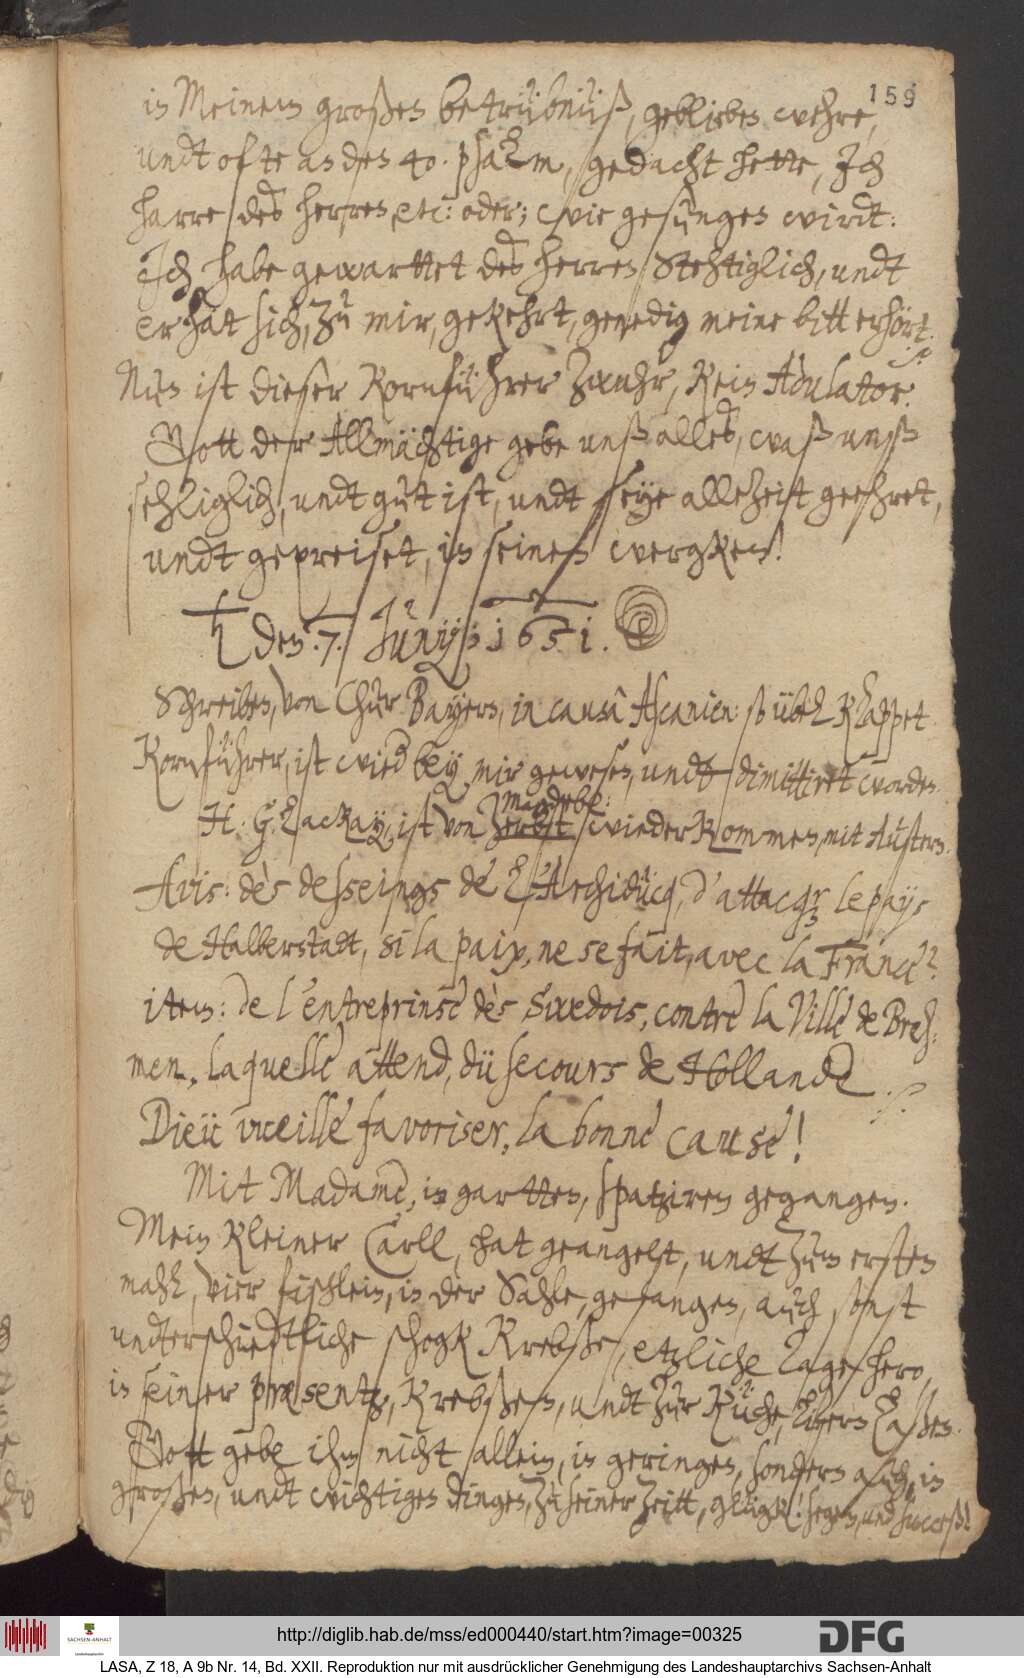 159
in Meinem großen betrübnüß, geblieben wehre,
undt ofte an den 40. psalm, gedacht hette, Ich
harre des herren, etc: oder; wie gesungen wirdt:
Ich habe gewarttet des herren stehtiglich, undt
er hat sich, zu mir, gekehrt, genedig meine bitt erhört ./.
Nun ist dieser Kornführer zwahr, kein Adulator.
Gott der Allmächtige gebe unß alles, waß unß
sehliglich, undt gut ist, undt seye allezeitt geehret,
undt gepreiset, in seinen wergken!
♄ den: 7. Junij: 1651.
Schreiben, von Chur Bayern, in causâ Ascanien: so übel klappet
Kornführer, ist wied bey mir gewesen, undt dimittiret worden
magdeb:
H: G: Lackay, ist von Zerbst wieder kommen, mit Austern.
Avis: dès desseings de l'Archiducq, d'attacqr le pays
de Halberstadt, si la paix, ne se fait, avec la France?
item: de l'entreprinse dès Swedois, contre la Ville de Bre-
men, laquelle attend, du secours de Hollande ./.
Dieu vueille favoriser, la bonne cause!
Mit Madame, in gartten, spatziren gegangen.
Mein kleiner Carll, hat geangelt, undt zum ersten
mahl, vier fischlein, in der Sahle, gefangen, auch sonst
undterschiedtliche schogk Krebße, etzliche Tage hero,
in seiner præsentz, Krebßen, undt zur Küche, lifern laßen.
Gott gebe ihm nicht allein, in geringen, sondern auch, in
großen, undt wichtigen dingen, zu seiner Zeitt, glügk! segen, und success!
http://diglib.hab.de/mss/ed000440/start.htm?image=00325
SACHSEN-ANHALT
Landeshauptarchiv
DFG
LASA, Z 18, A 9b Nr. 14, Bd. XXII. Reproduktion nur mit ausdrücklicher Genehmigung des Landeshauptarchivs Sachsen-Anhalt